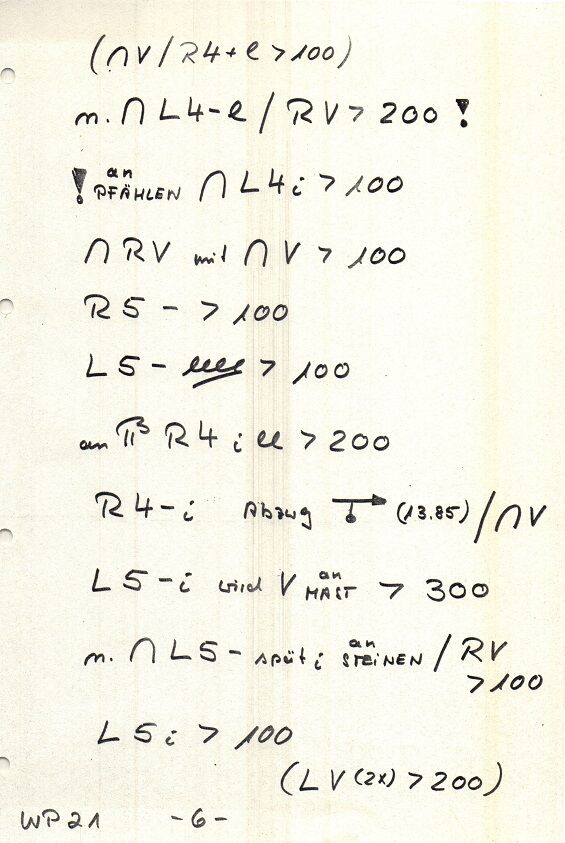 (∩V/R4+e>100)
n. ∩ L4-e / RV > 200 !
! an PFÄHLEN ∩ L4i > 100
∩ RV mit ∩ V > 100
R5 - > 100
L5 - > 100
an R4 i > 200
R4-i Abzug (13.85) / ∩V
L5-i wird V an MAST > 300
n. ∩ L5 - spät i an STEINEN / RV
> 100
L5i > 100
(LV (2x) > 200)
WP21 -6-